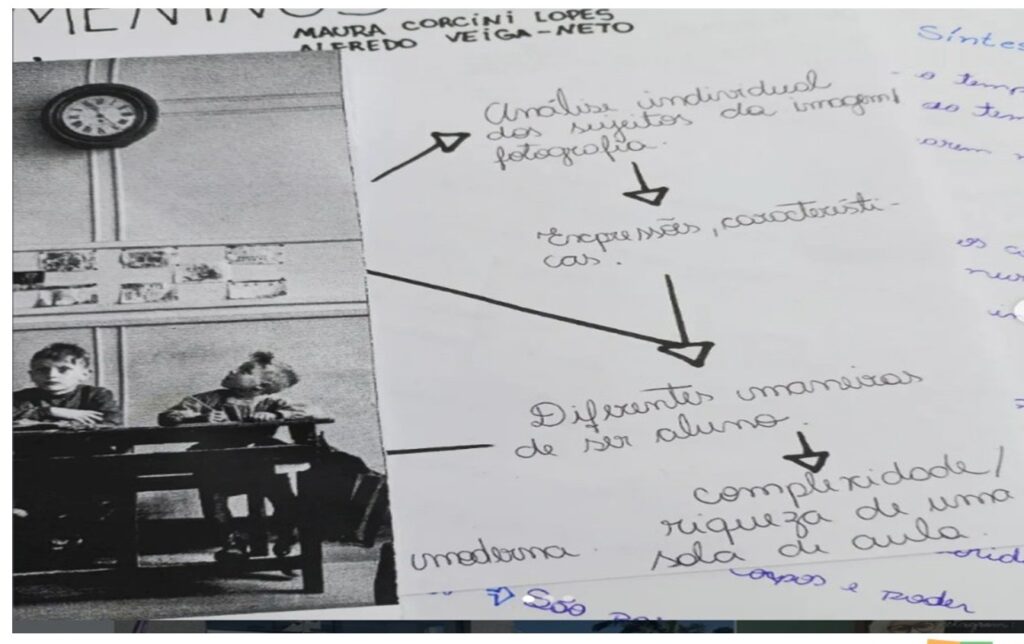 MENINOS
MAURA CORCINI LOPES
ALFREDO VEIGA-NETO
Análise individual
dos sujeitos da imagem/
fotografia.
Expressões, característi-
cas.
Diferentes maneiras
de ser aluno.
complexidade/
riqueza de uma
sala de aula.
moderna.
Síntes
o temp
ao tem
arem
os
corpos e poder
São